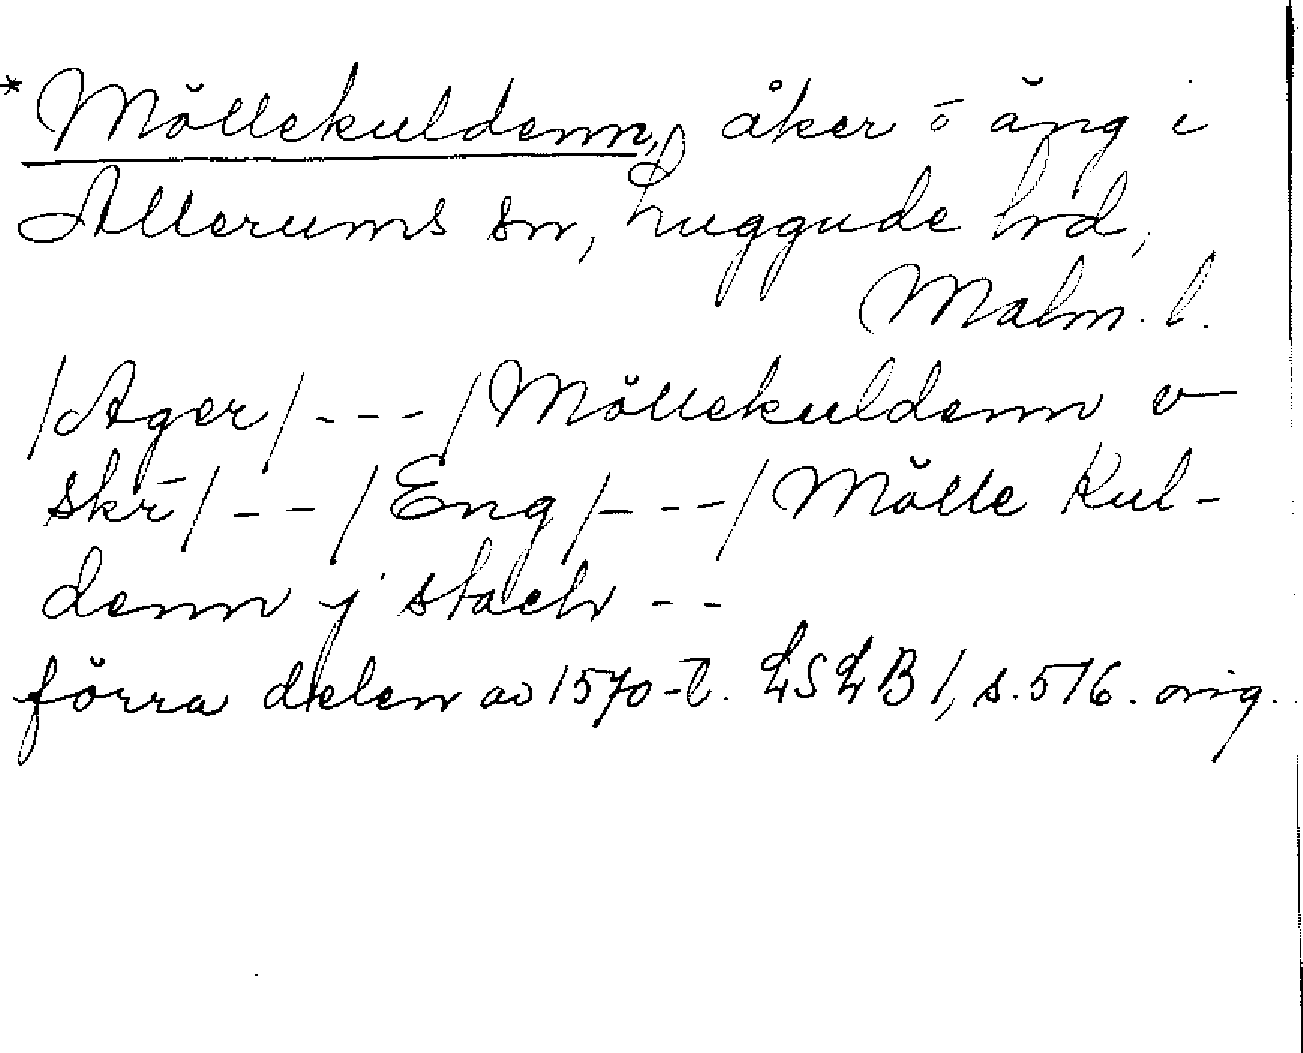 * Möllekuldenn, åker o äng i
Allerums sn, Luggude hd,
Malm. l.
/Ager/ - - - /Möllekuldenn v
skr/ - - /Eng/ - - - /Mölle Kul-
denn j stach - -
förra delen av 1570-t. LSLB 1, s. 516. orig.